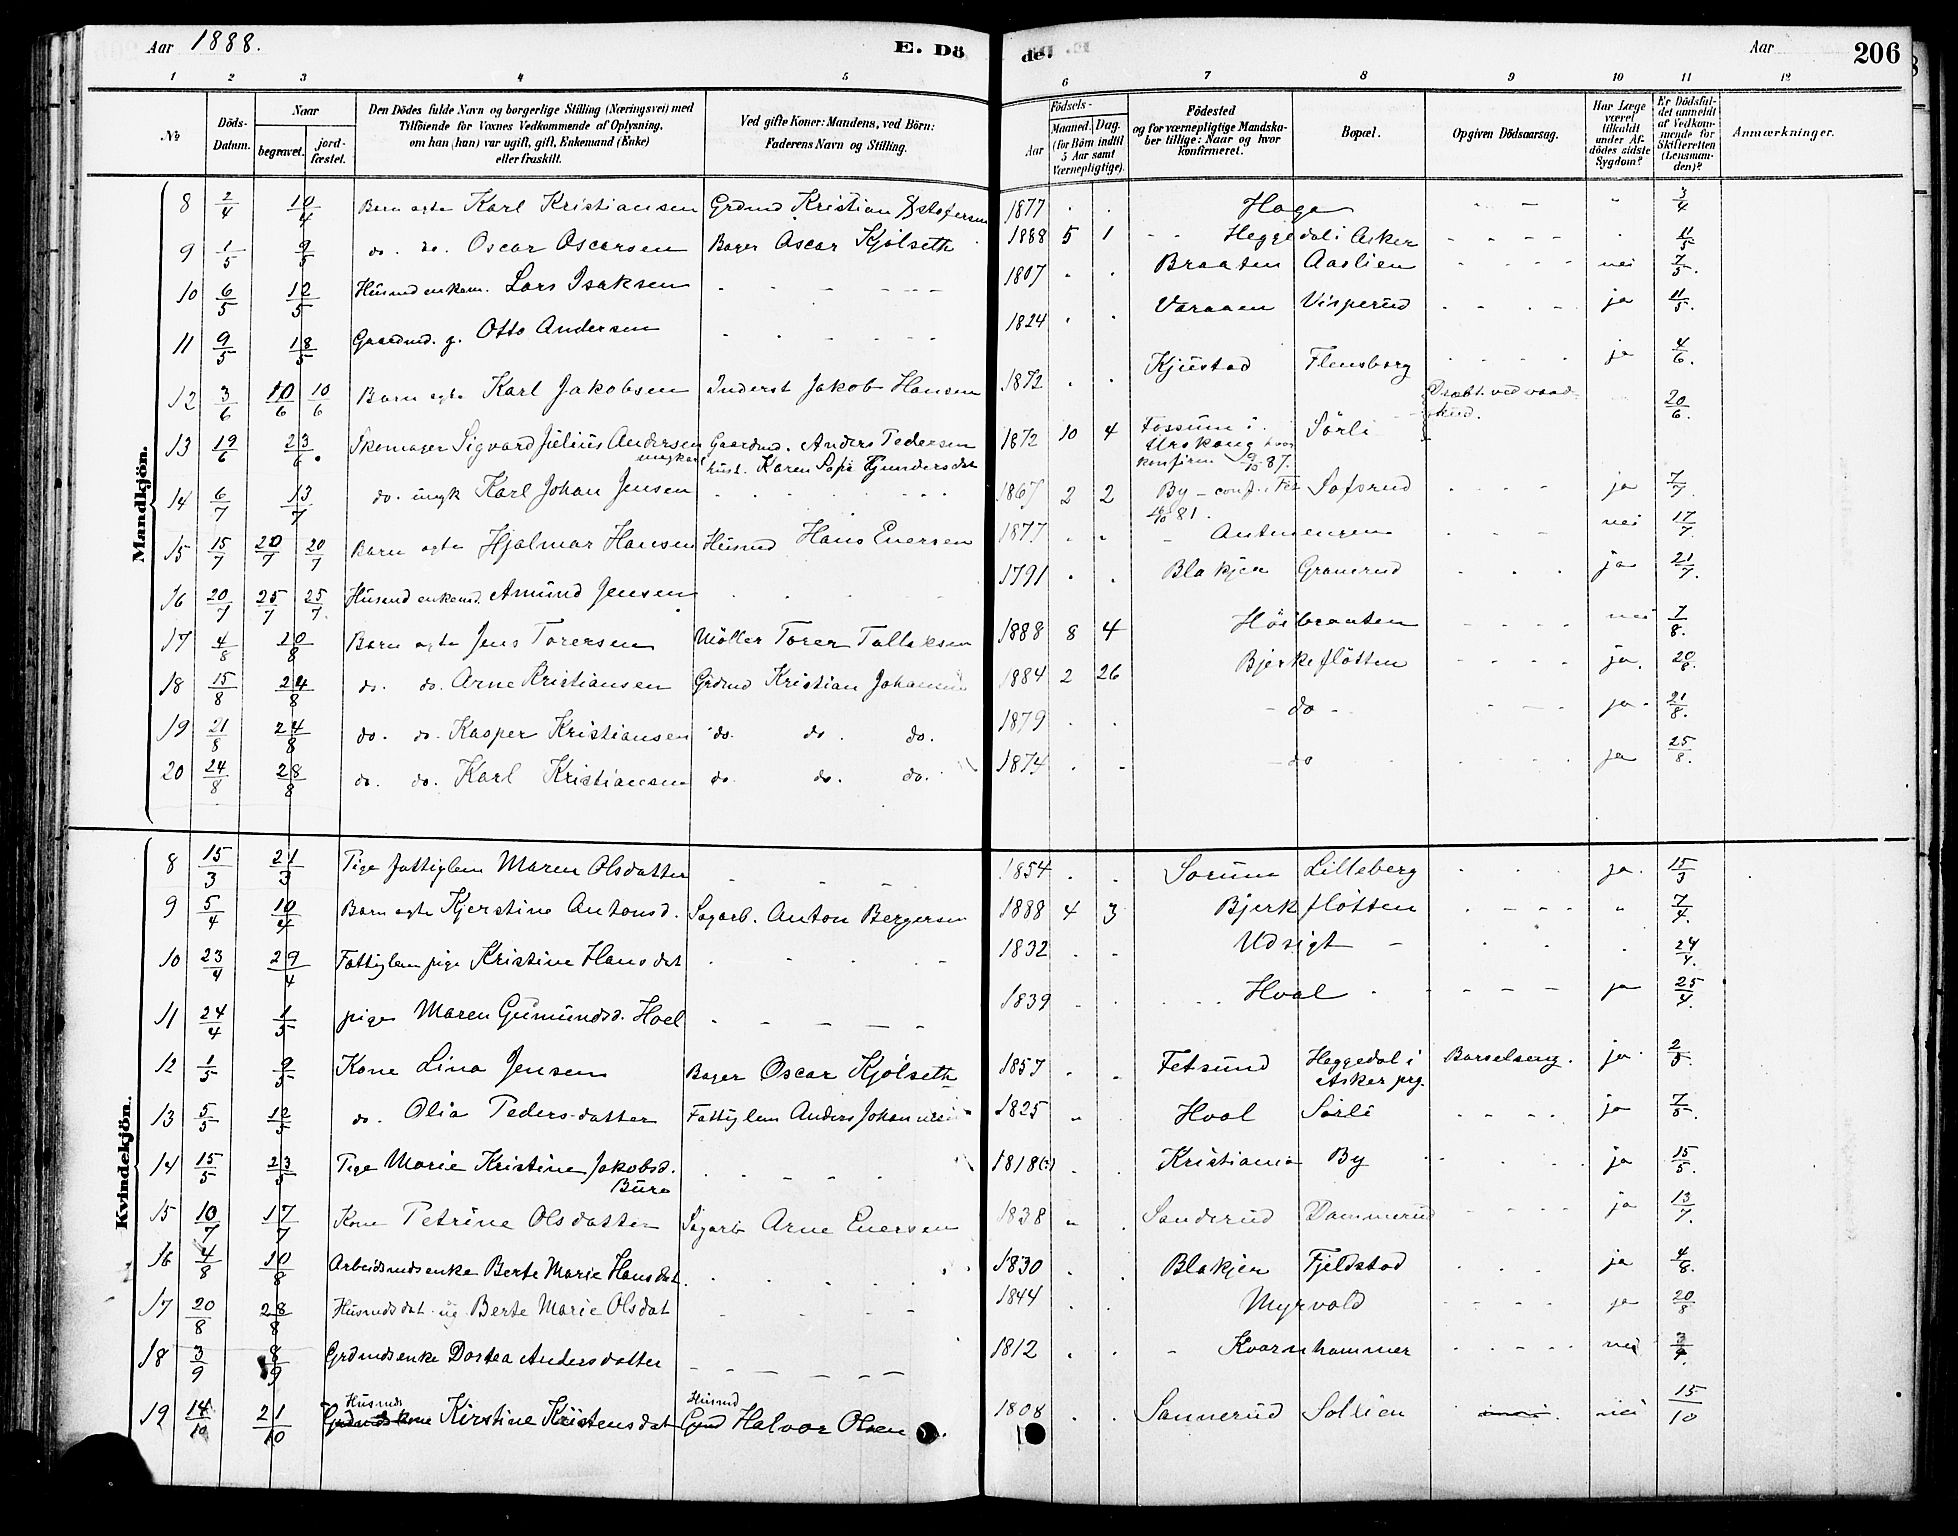 Aar 1888. E. Dö
de. Aar 206
1 2 3 4 5 6 7 8 9 10 11 12
No Döds-Datum. Naar begravet. jord-fæstet. Den Dödes fulde Navn og borgerlige Stilling (Næringsvei) med Tilföiende for Voxnes Vedkommende af Oplysning, om han (hun) var ugift, gift, Enkemand (Enke) eller fraskilt. Ved gifte Koner: Mandens, ved Börn: Faderens Navn og Stilling. Födsels- Aar Maaned. Dag. (for Börn indtil 5 Aar samt Værnepligtige). Födested og for værnepligtige Mandskaber tillige: Naar og hvor konfirmeret. Bopæl. Opgiven Dödsaarsag. Har Læge været tilkaldt under Afdödes sidste Sygdom? Er Dödsfaldet anmeldt af Vedkommende for Skifteretten (Lensmanden)? Anmærkninger.
Mandkjön.
8 2/4 10/4 Barn ægte Karl Kristiansen Grdmd Kristian 1877 Haga 3/4
9 1/5 9/5 do. do. Oscar Oscarsen Bager Oscar Kjölseth 1888 5 1 Heggedal i Asker 11/5
10 6/5 12/5 Husmd enkem. Lars Isaksen 1807 Braaten Aaslien nei 7/5.
11 9/5 18/5 Gaardmd. g. Otto Andersen 1824 Varaaen Visperud ja 11/5.
12 3/6 10/6 10/6 Barn ægte Karl Jakobsen Inderst Jakob Hansen 1872 Kjustad Flensborg ja 4/6.
13 19/6 23/6 Skomager Sigvard Julius Andersen ungkarl Gaardmd. Anders Pedersen hust. Karen Sofie 1872 10 4 Fossum i Urskoug hvor konfirm 87. Sörli Dræbt ved vaadeskud. 20/6.
14 6/7 13/7 do. ungk Karl Johan Jensen 1867 2 2 By - conf. i Fet 81. Sofsrud ja 7/7.
15 15/7 20/7 20/7 Barn ægte Hjalmar Hansen Husmd Hans Evensen 1877 nei 17/7.
16 20/7 25/7 25/7. Husmd enkemd. Amund Jensen 1791 Blakjer Granerud ja 21/7.
17 4/8 20/8 Barn ægte Jens Torersen Möller Torer Tollaksen 1888 8 4 Höibraaten nei 7/8.
18 15/8 24/8 do. do. Arne Kristiansen Grdmd Kristian Johansen 1884 2 26 Bjerkeflötten ja. 20/8.
19 21/8 24/8 do. do. Kasper Kristiansen do. do. do. 1879 do ja. 21/8.
20 24/8 28/8 do. do. Karl Kristiansen do. do. do. 1874 do ja 25/8.
Kvindekjön.
8 15/3 21/3 Pige fattiglem Maren Olsdatter 1854 Sorum Lilleberg ja. 15/3
9 5/4 10/4 Barn ægte Kjerstine Antonsd. Sagarb. Anton Bergersen 1888 4 3 Bjerkflötten 7/4.
10 23/4 29/4 Fattiglem pige Kristine Hansdat 1832 Udsigt 24/4.
11 24/4 1/5 pige Maren Gumundsd. Hoel 1839 Hval ja 25/4.
12 1/5 9/5 Kone Lina Jensen Bager Oscar Kjölseth 1857 Fetsund Heggedal i Asker prg. Barselseng. ja. 2/5.
13 5/5 12/5 do. Olia Pedersdatter Fattiglem Anders Johannesen 1825 Hval Sörli ja 7/5.
14 15/5 23/5 Pige Marie Kristine Jakobsd. Bure 1818 Kristiania By ja 15/5.
15 10/7 17/7 Kone Petrine Olsdatter Sagarb Arne Evensen 1838 Sanderud Dammerud ja 13/7.
16 4/8 10/8 Arbeidsmdsenke Berte Marie Hansdat. 1830 Blakjer Fjeldstad ja 4/8.
17 20/8 28/8 Husmdsdat ug Berte Marie Olsdat 1844 Myrvold ja 20/8
18 3/9 8/9 Grdmdsenke Dortea Andersdatter 1812 Kvarnhammer nei 3/9.
19 14/10 21/10 Husmds Grdmdskone Kirstine Kristensdat Husmd Gmd Halvor Olsen. 1808 Sannerud Sollien nei 15/10